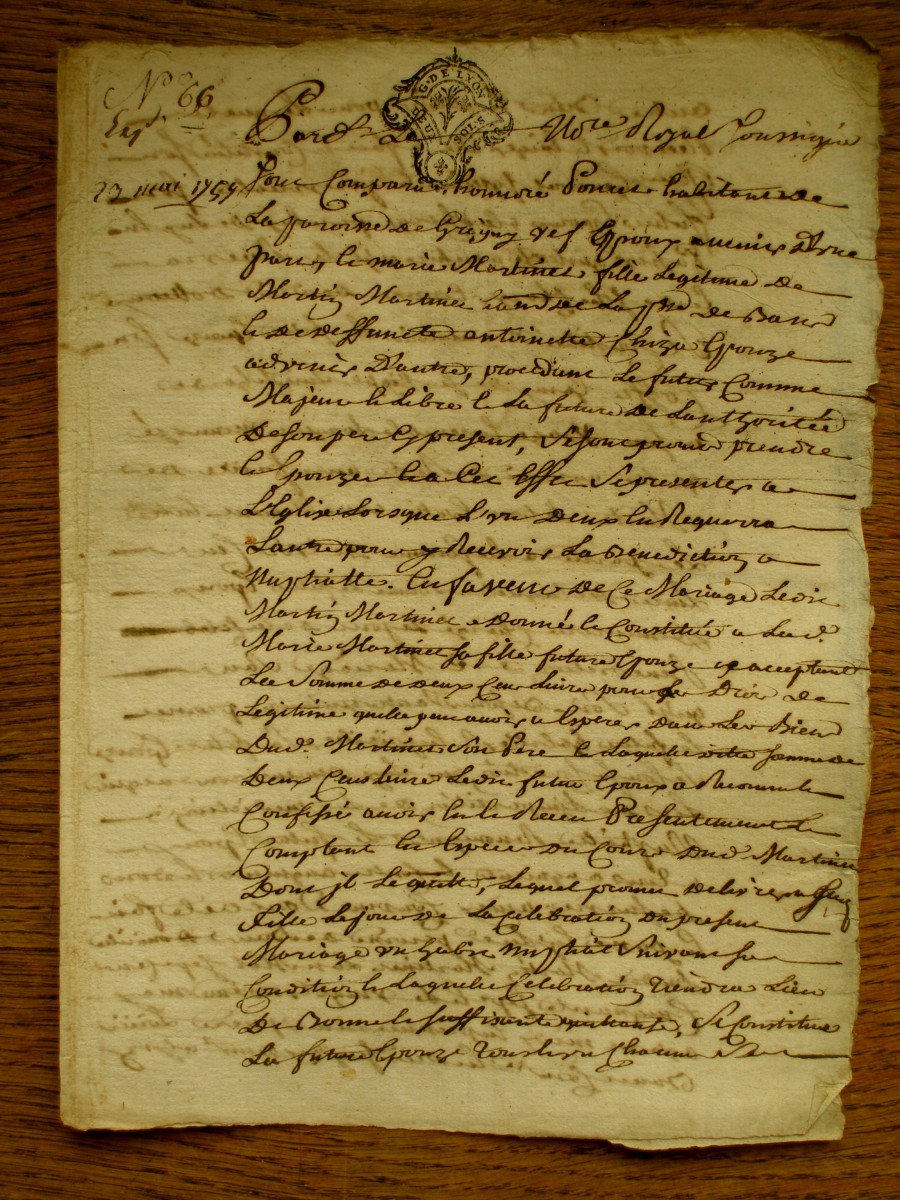 N° 66
Exp.
G. DE LYON
DEUX SOLS
Pard. Le Nore Royal Soussigné
23 mai 1759
Sont Comparu honnoré Poncet habitant de
La paroisse de Grigny vef Epoux avenir D'une
part, Et marie Martinet fille Legitime de
Martin Martinet habt de La psse de
Et de deffuncte antoinette Epouze
advenir D'autre, procedant Le futur Comme
Majeur Et Libre Et La future de Lauthoritée
De son pere Cy present, Se sont promis prendre
Et Epouzer Et a Cet Effet Se presenter a
L'Eglize Lorsque L'un Deux En Requerra
Lautre pour y Recevoir La Benediction
Nuptialle. En faveur de Ce Mariage Ledit
Martin Martinet a Donné Et Constitué a Lad.
Marie Martinet sa fille future Epouze acceptant
La Somme de deux Cent Livre pour Droit de
Legitime quelle peut avoir a Esperer dans Les Bien
Dud. Martinet Son Pere Et Laquelle ditte Somme de
Deux Cens Livre Ledit futur Epoux a Reconnu Et
Confessé avoir Eu Et Receu Presentement Et
Comptant En Espece du Cours Dud. Martinet
Dont jl Le quitte, Lequel promet delivrer a
Fille Le jour de La Celebration du present
Mariage un habit nuptial Suivant sa
Condition Et Laquelle Celebration Tiendra Lieu
De Bonne Et suffisante quittance, Se Constitue
La future Epouze